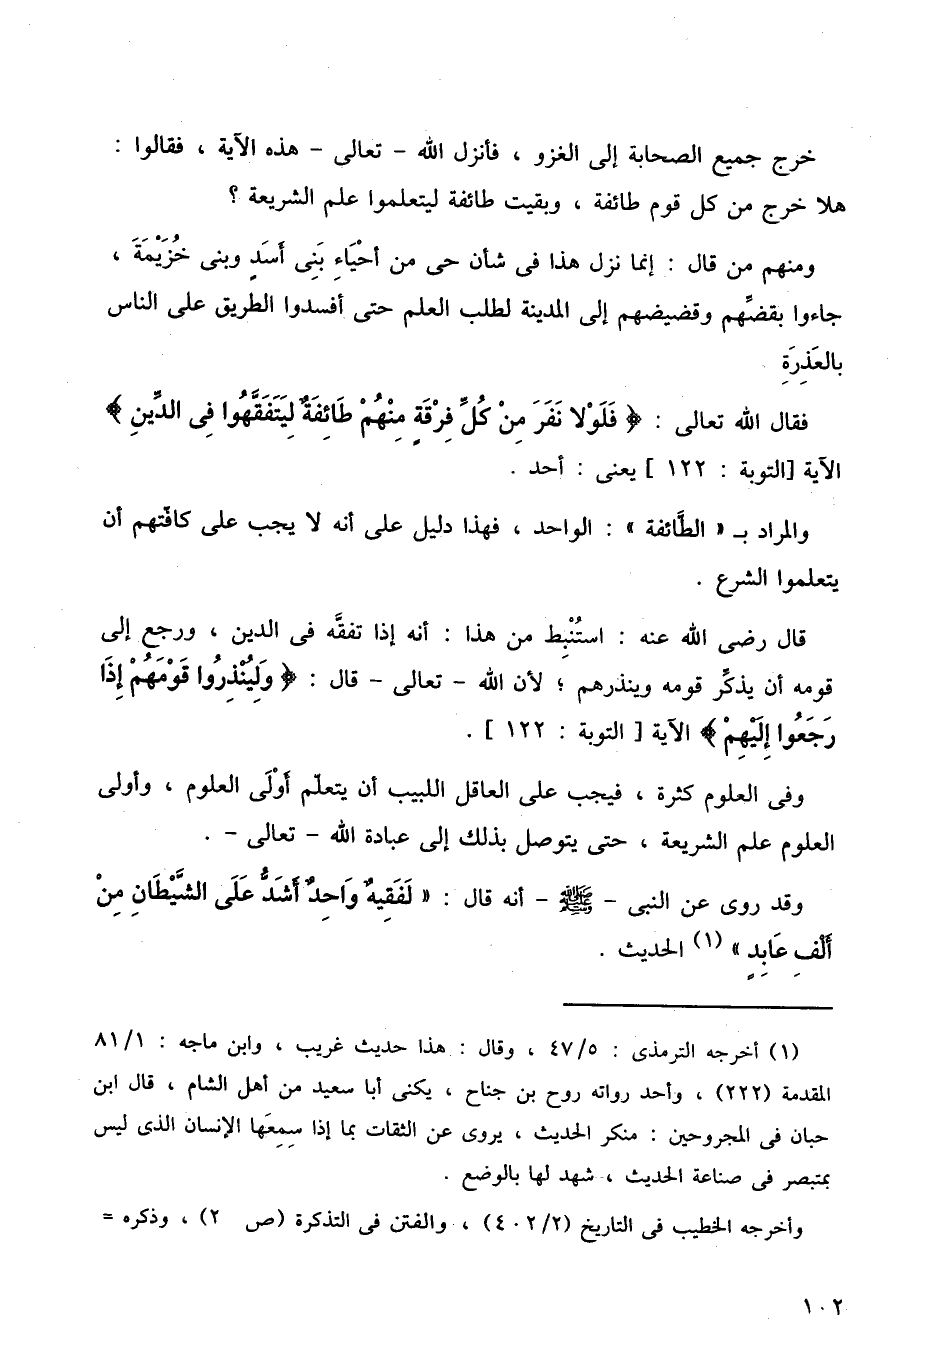 خرج جميع الصحابة إلى الغزو ، فأنزل الله – تعالى – هذه الآية ، فقالوا :
هلا خرج من كل قوم طائفة ، وبقيت طائفة ليتعلموا علم الشريعة ؟
ومنهم من قال : إنما نزل هذا فى شأن حى من أحْيَاءِ بَنِى أَسَدٍ وبنى خُزَيْمَةَ ،
جاءوا بقضِّهم وقضيضهم إلى المدينة لطلب العلم حتى أفسدوا الطريق على الناس
بالعَذِرَةِ
فقال الله تعالى : ﴿ فَلَوْلا نَفَرَ مِنْ كُلِّ فِرْقَةٍ مِنْهُمْ طَائِفَةٌ لِيَتَفَقَّهُوا فِى الدِّينِ ﴾
الآية [التوبة : ١٢٢ ] يعنى : أحد .
والمراد بـ « الطَّائفة » : الواحد ، فهذا دليل على أنه لا يجب على كافّتهم أن
يتعلموا الشرع .
قال رضى الله عنه : استُنْبِط من هذا : أنه إذا تفقَّه فى الدين ، ورجع إلى
قومه أن يذكِّر قومه وينذرهم ؛ لأن الله – تعالى – قال : ﴿ وَلِيُنْذِرُوا قَوْمَهُمْ إِذَا
رَجَعُوا إِلَيْهِمْ ﴾ الآية [ التوبة : ١٢٢ ] .
وفى العلوم كثرة ، فيجب على العاقل اللبيب أن يتعلّم أَوْلَى العلوم ، وأولى
العلوم علم الشريعة ، حتى يتوصل بذلك إلى عبادة الله – تعالى – .
وقد روى عن النبى – ﷺ – أنه قال : « لَفَقِيهٌ وَاحِدٌ أَشَدُّ عَلَى الشَّيْطَانِ مِنْ
أَلْفِ عَابِدٍ » (١) الحديث .
(١) أخرجه الترمذى : ٤٧/٥ ، وقال : هذا حديث غريب ، وابن ماجه : ٨١/١
المقدمة (٢٢٢) ، وأحد رواته روح بن جناح ، يكنى أبا سعيد من أهل الشام ، قال ابن
حبان فى المجروحين : منكر الحديث ، يروى عن الثقات بما إذا سمِعَها الإنسان الذى ليس
بمتبصر فى صناعة الحديث ، شهد لها بالوضع .
وأخرجه الخطيب فى التاريخ (٤٠٢/٢) ، والفتن فى التذكرة (ص ٢) ، وذكره =
١٠٢